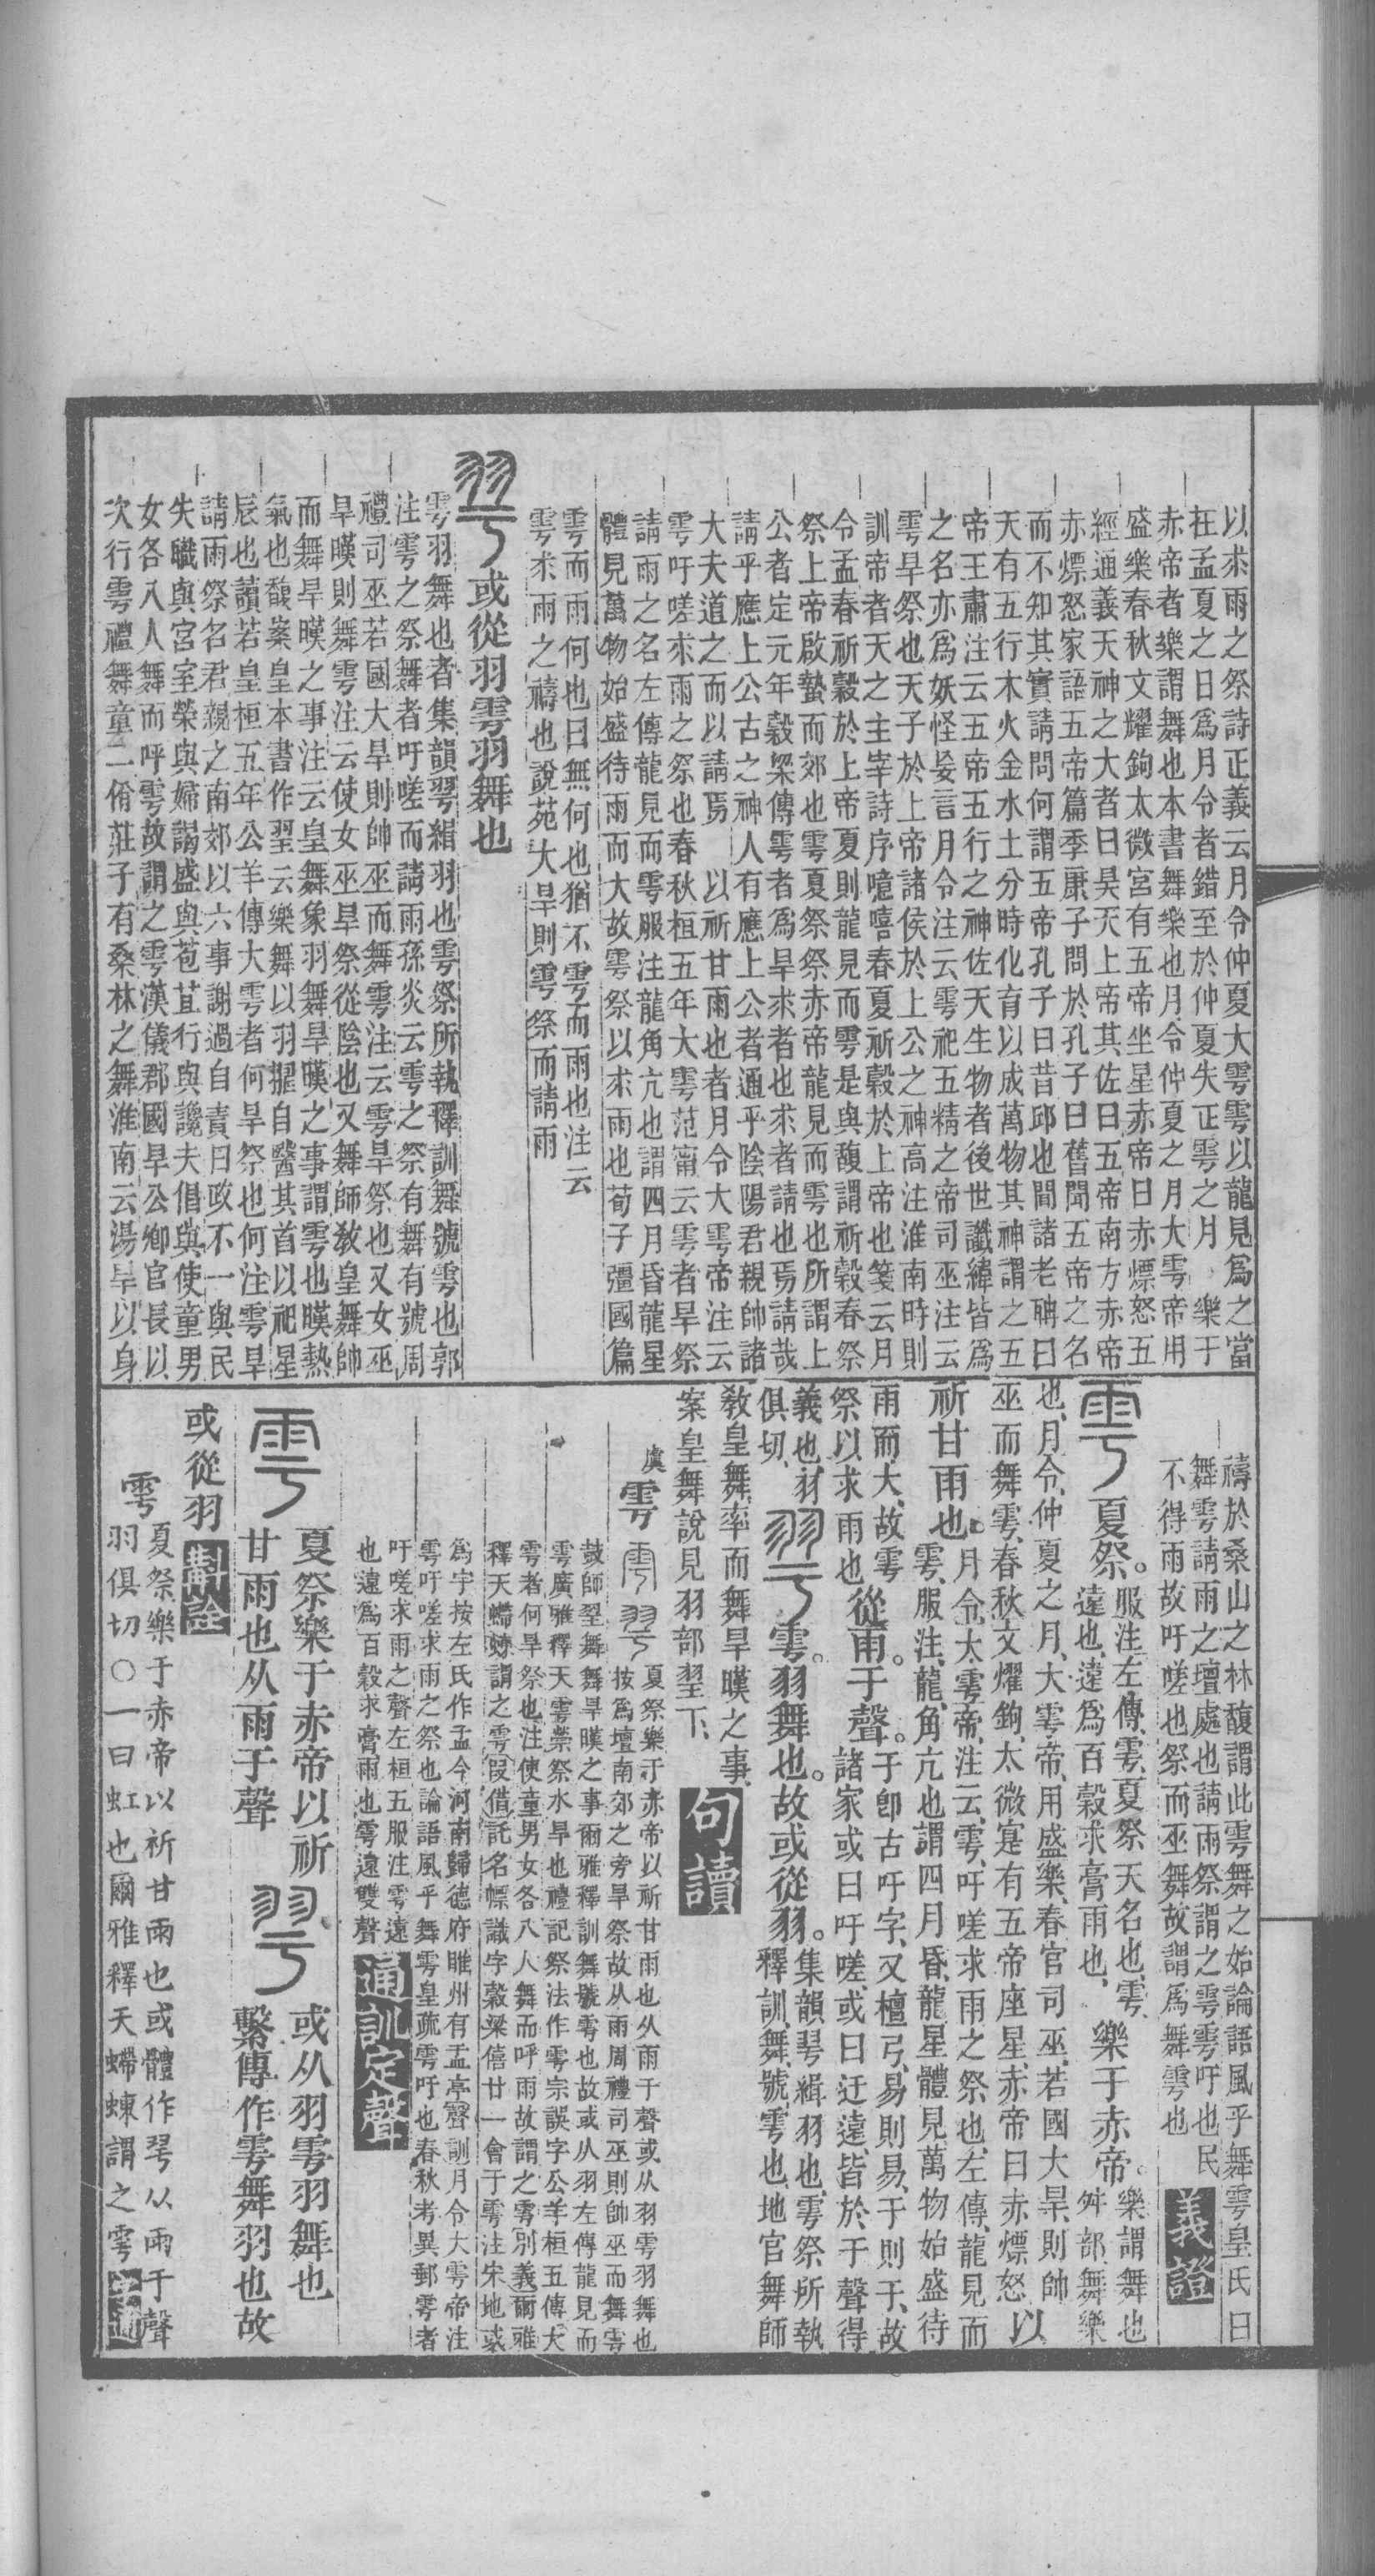 以求雨之祭詩正義云月令仲夏大雩雩以龍見爲之當
在孟夏之日爲月令者錯至於仲夏失正雩之月　樂于
赤帝者樂謂舞也本書舞樂也月令仲夏之月大雩帝用
盛樂春秋文耀鉤太微宮有五帝坐星赤帝曰赤熛怒五
經通義天神之大者曰昊天上帝其佐曰五帝南方赤帝
赤熛怒家語五帝篇季康子問於孔子曰舊聞五帝之名
而不知其實請問何謂五帝孔子曰昔邱也聞諸老聃曰
天有五行木火金水土分時化育以成萬物其神謂之五
帝王肅注云五帝五行之神佐天生物者後世讖緯皆爲
之名亦爲妖怪妄言月令注云雩祀五精之帝司巫注云
雩旱祭也天子於上帝諸侯於上公之神高注淮南時則
訓帝者天之主宰詩序噫嘻春夏祈穀於上帝也箋云月
令孟春祈穀於上帝夏則龍見而雩是與馥謂祈穀春祭
祭上帝啟蟄而郊也雩夏祭祭赤帝龍見而雩也所謂上
公者定元年穀梁傳雩者爲旱求者也求者請也焉請哉
請乎應上公古之神人有應上公者通乎陰陽君親帥諸
大夫道之而以請焉　以祈甘雨也者月令大雩帝注云
雩吁嗟求雨之祭也春秋桓五年大雩范甯云雩者旱祭
請雨之名左傳龍見而雩服注龍角亢也謂四月昏龍星
體見萬物始盛待雨而大故雩祭以求雨也荀子彊國篇
雩而雨何也曰無何也猶不雩而雨也注云
雩求雨之禱也說苑大旱則雩祭而請雨
或從羽雩羽舞也
雩羽舞也者集韻䍣緝羽也雩祭所執釋訓舞號雩也郭
注雩之祭舞者吁嗟而請雨孫炎云雩之祭有舞有號周
禮司巫若國大旱則帥巫而舞雩注云雩旱祭也又女巫
旱暵則舞雩注云使女巫旱祭從陰也又舞師教皇舞帥
而舞旱暵之事注云皇舞象羽舞旱暵之事謂雩也暵熱
氣也馥案皇本書作翌云樂舞以羽翿自翳其首以祀星
辰也讀若皇桓五年公羊傳大雩者何旱祭也何注雩旱
請雨祭名君親之南郊以六事謝過自責曰政不一與民
失職與宮室榮與婦謁盛與苞苴行與讒夫倡與使童男
女各八人舞而呼雩故謂之雩漢儀郡國旱公卿官長以
次行雩禮舞童二佾莊子有桑林之舞淮南云湯旱以身
禱於桑山之林馥謂此雩舞之始論語風乎舞雩皇氏曰
舞雩請雨之壇處也請雨祭謂之雩雩吁也民
不得雨故吁嗟也祭而巫舞故謂爲舞雩也　義證
夏祭。服注左傳、雩、夏祭天名也、雩、
遠也、遠爲百穀求膏雨也、樂于赤帝。樂謂舞也
舛部、舞樂
也、月令、仲夏之月、大雩帝、用盛樂、春官司巫、若國大旱、則帥
巫而舞雩、春秋文燿鉤、太微宮有五帝座星、赤帝曰赤熛怒、以
祈甘雨也。月令、大雩帝、注云、雩、吁嗟求雨之祭也、左傳、龍見而
雩、服注、龍、角亢也、謂四月昏、龍星體見、萬物始盛、待
雨而大、故雩
祭以求雨也從雨。于聲。于即古吁字、又檀弓、易則易、于則于、故
諸家或曰吁嗟、或曰迂遠、皆於于聲得
義也、羽
俱切、雩。羽舞也。故或從羽。集韻、䍣、緝羽也、雩祭所執
釋訓、舞號、雩也、地官舞師
教皇舞、率而舞旱暵之事、
案皇舞說見羽部翌下、　句讀
虞　雩　夏祭樂于赤帝以祈甘雨也从雨于聲或从羽雩羽舞也
按爲壇南郊之旁旱祭故从雨周禮司巫則帥巫而舞雩
鼓師翌舞舞旱暵之事爾雅釋訓舞號雩也故或从羽左傳龍見而
雩廣雅釋天雩禜祭水旱也禮記祭法作雩宗誤字公羊桓五傳大
雩者何旱祭也注使童男女各八人舞而呼雨故謂之雩別義爾雅
釋天螮蝀謂之雩叚借託名幖識字穀梁僖廿一會于雩注宋地或
爲宇按左氏作盂今河南歸德府睢州有盂亭聲訓月令大雩帝注
雩吁嗟求雨之祭也論語風乎舞雩皇疏雩吁也春秋考異郵雩者
吁嗟求雨之聲左桓五服注雩遠
也遠爲百穀求膏雨也雩遠雙聲　通訓定聲
夏祭樂于赤帝以祈
甘雨也从雨于聲
或从羽雩羽舞也
繫傳作雩舞羽也故
或從羽　斠詮
雩　夏祭樂于赤帝以祈甘雨也或體作䍣从雨于聲
羽俱切〇一曰虹也爾雅釋天螮蝀謂之雩